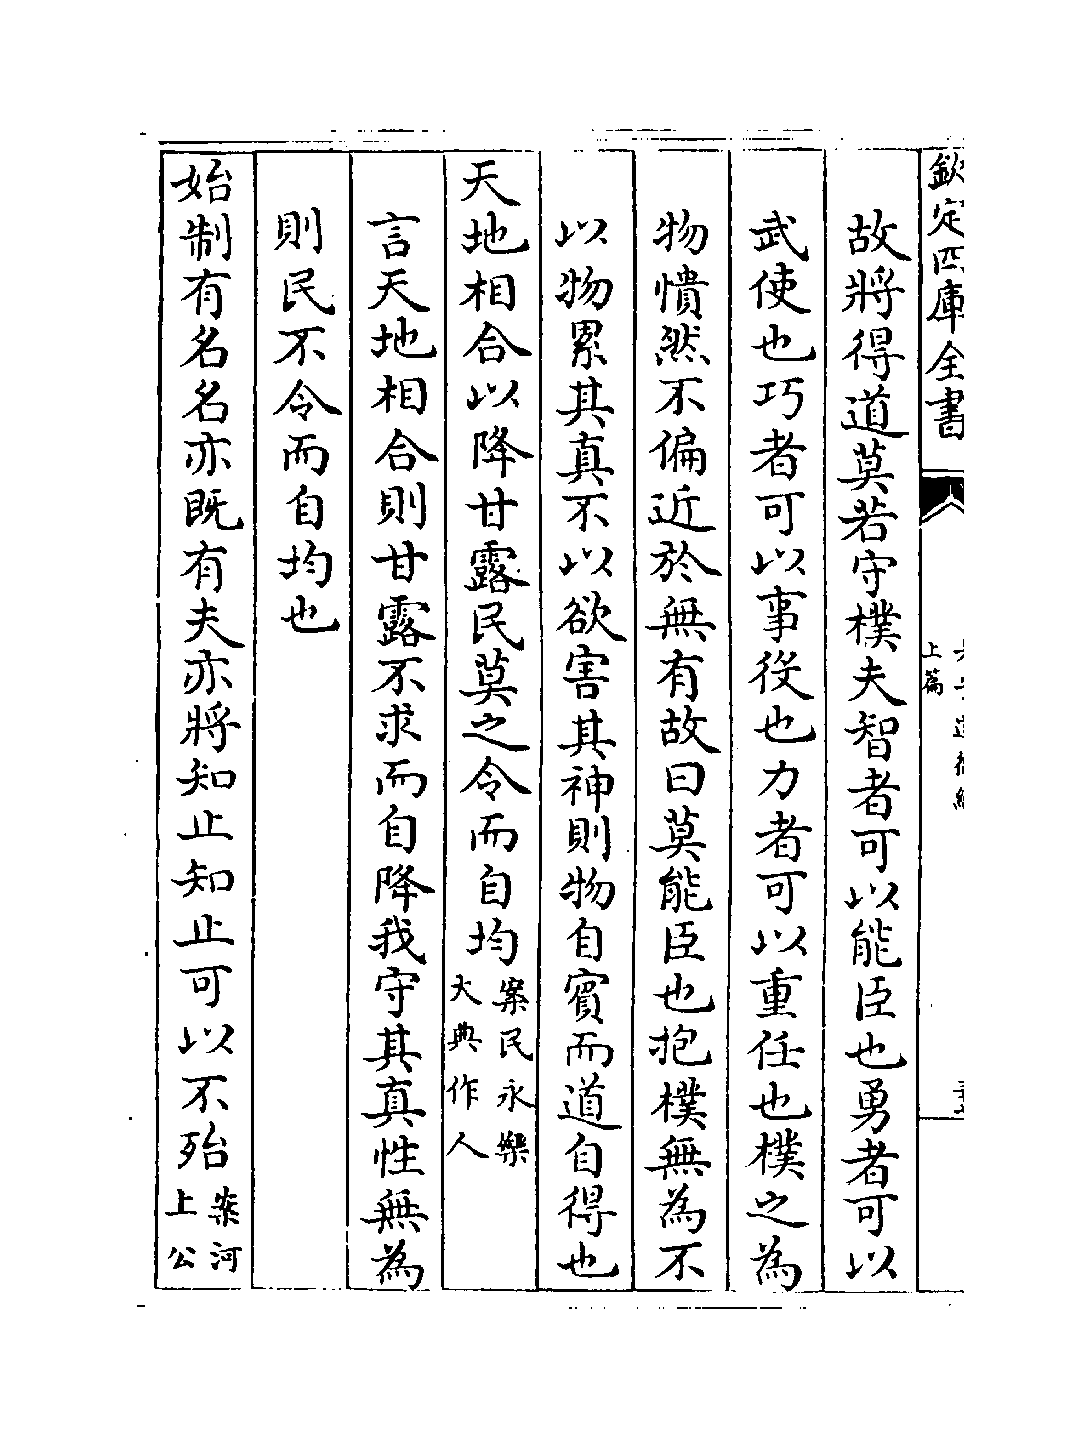 欽定四庫全書
上篇
故將得道莫若守樸夫智者可以能臣也勇者可以
武使也巧者可以事役也力者可以重任也樸之為
物憒然不偏近於無有故曰莫能臣也抱樸無為不
以物累其真不以欲害其神則物自賓而道自得也
天地相合以降甘露民莫之令而自均案民永樂大典作人
言天地相合則甘露不求而自降我守其真性無為
則民不令而自均也
始制有名名亦既有夫亦將知止知止可以不殆案河上公